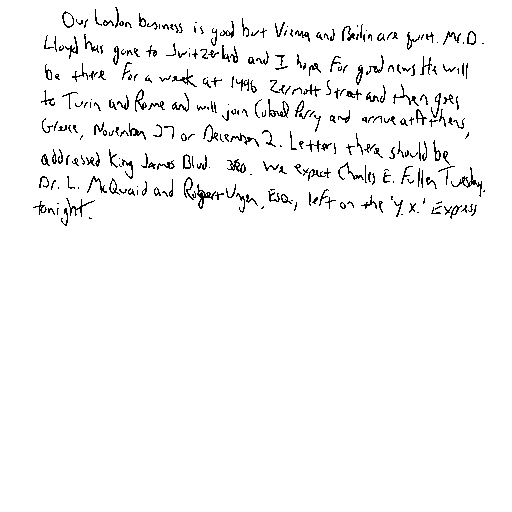 Our London business is good but Vienna and Berlin are quiet. Mr. D.
Lloyd has gone to Switzerland and I hope for good news. He will
be there for a week at 1496 Zermott Street and then goes
to Turin and Rome and will join Colonel Parry and arrive at Athens,
Greece, November 27 or December 2. Letters there should be
addressed King James Blvd. 3580. We expect Charles E. Fuller Tuesday.
Dr. L. McQuaid and Robert Unger, Esq., left on the 'Y.X.' Express
tonight.